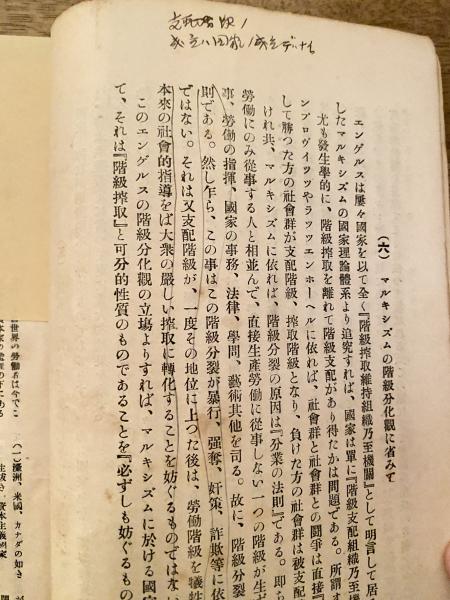 (六) マルキシズムの階級分化觀に省みて
エンゲルスは屢々國家を以て全く『階級搾取維持組織乃至機關』として明言して居
したマルキシズムの國家理論體系より追究すれば、國家は單に『階級支配組織乃至機
尤も發生學的に、階級搾取を離れて階級支配があり得たかは問題である。所謂
ンプロヴイツツやラツツエンホーフルに依れば、社會群と社會群との鬪爭は直接『
して勝つた方の社會群が支配階級、搾取階級となり、負けた方の社會群は被支配
けれ共、マルキシズムに依れば、階級分裂の原因は『分業の法則』である。即ち
勞働にのみ從事する人と相並んで、直接生產勞働に從事しない一つの階級が生
事、勞働の指揮、國家の事務、法律、學問、藝術其他を司る。故に、階級分裂
則である。然し乍ら、この事はこの階級分裂が暴行、强奪、奸策、詐欺等に依
ではない。それは又支配階級が、一度その地位に上つた後は、勞働階級を犠牲
本來の社會的指導をば大衆の嚴しい搾取に轉化することを妨ぐるものではない
このエンゲルスの階級分化觀の立場よりすれば、マルキシズムに於ける國家
て、それは『階級搾取』と可分的性質のものであることを『必ずしも妨ぐるもの
『世界の勞働とは今でこ
(一)濠洲、米國、カナダの如き